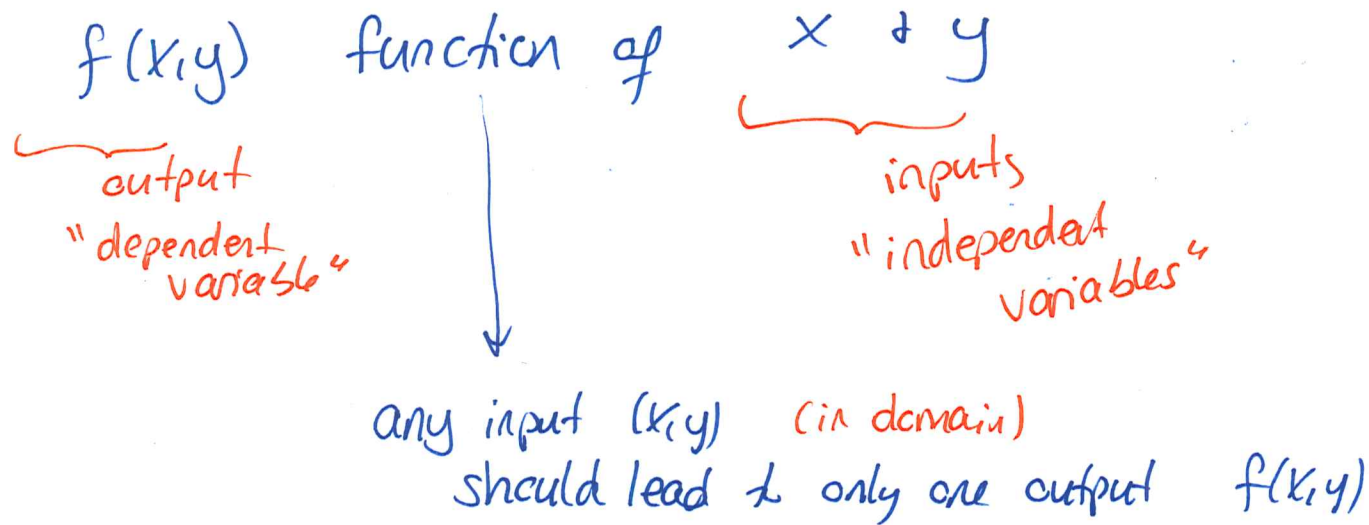 f(x,y) function of x & y
output
"dependent
variable"
inputs
"independent
variables"
any input (x,y) (in domain)
should lead to only one output f(x,y)